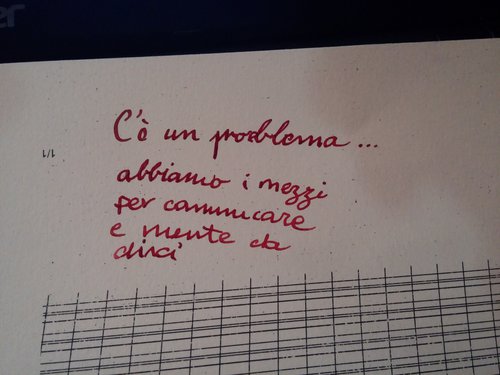 er
C'è un problema ...
1/1
abbiamo i mezzi
per comunicare
e niente da
dirci